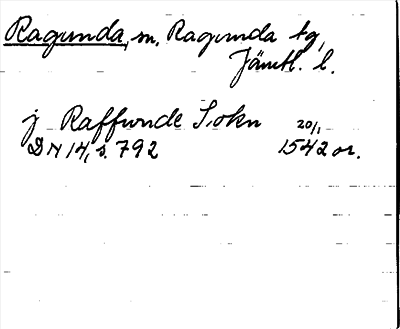 Ragunda, sn, Ragunda tg,
Jämtl. l.
j Raffunde Sokn 20/1
DN 14, s. 792 1542 or.